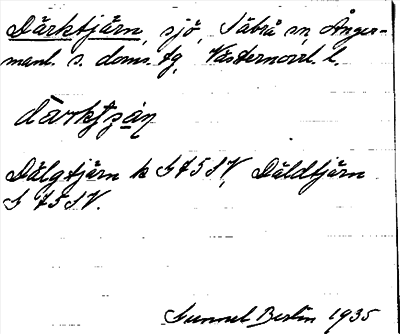 Därktjärn, sjö, Säbrå sn, Ånger-
manl. s. doms. tg, Västernorrl. l.
därktjän
Dälgtjärn k G 45 SV, Däldtjärn
G 45 SV.
Gunnel Berlin 1935